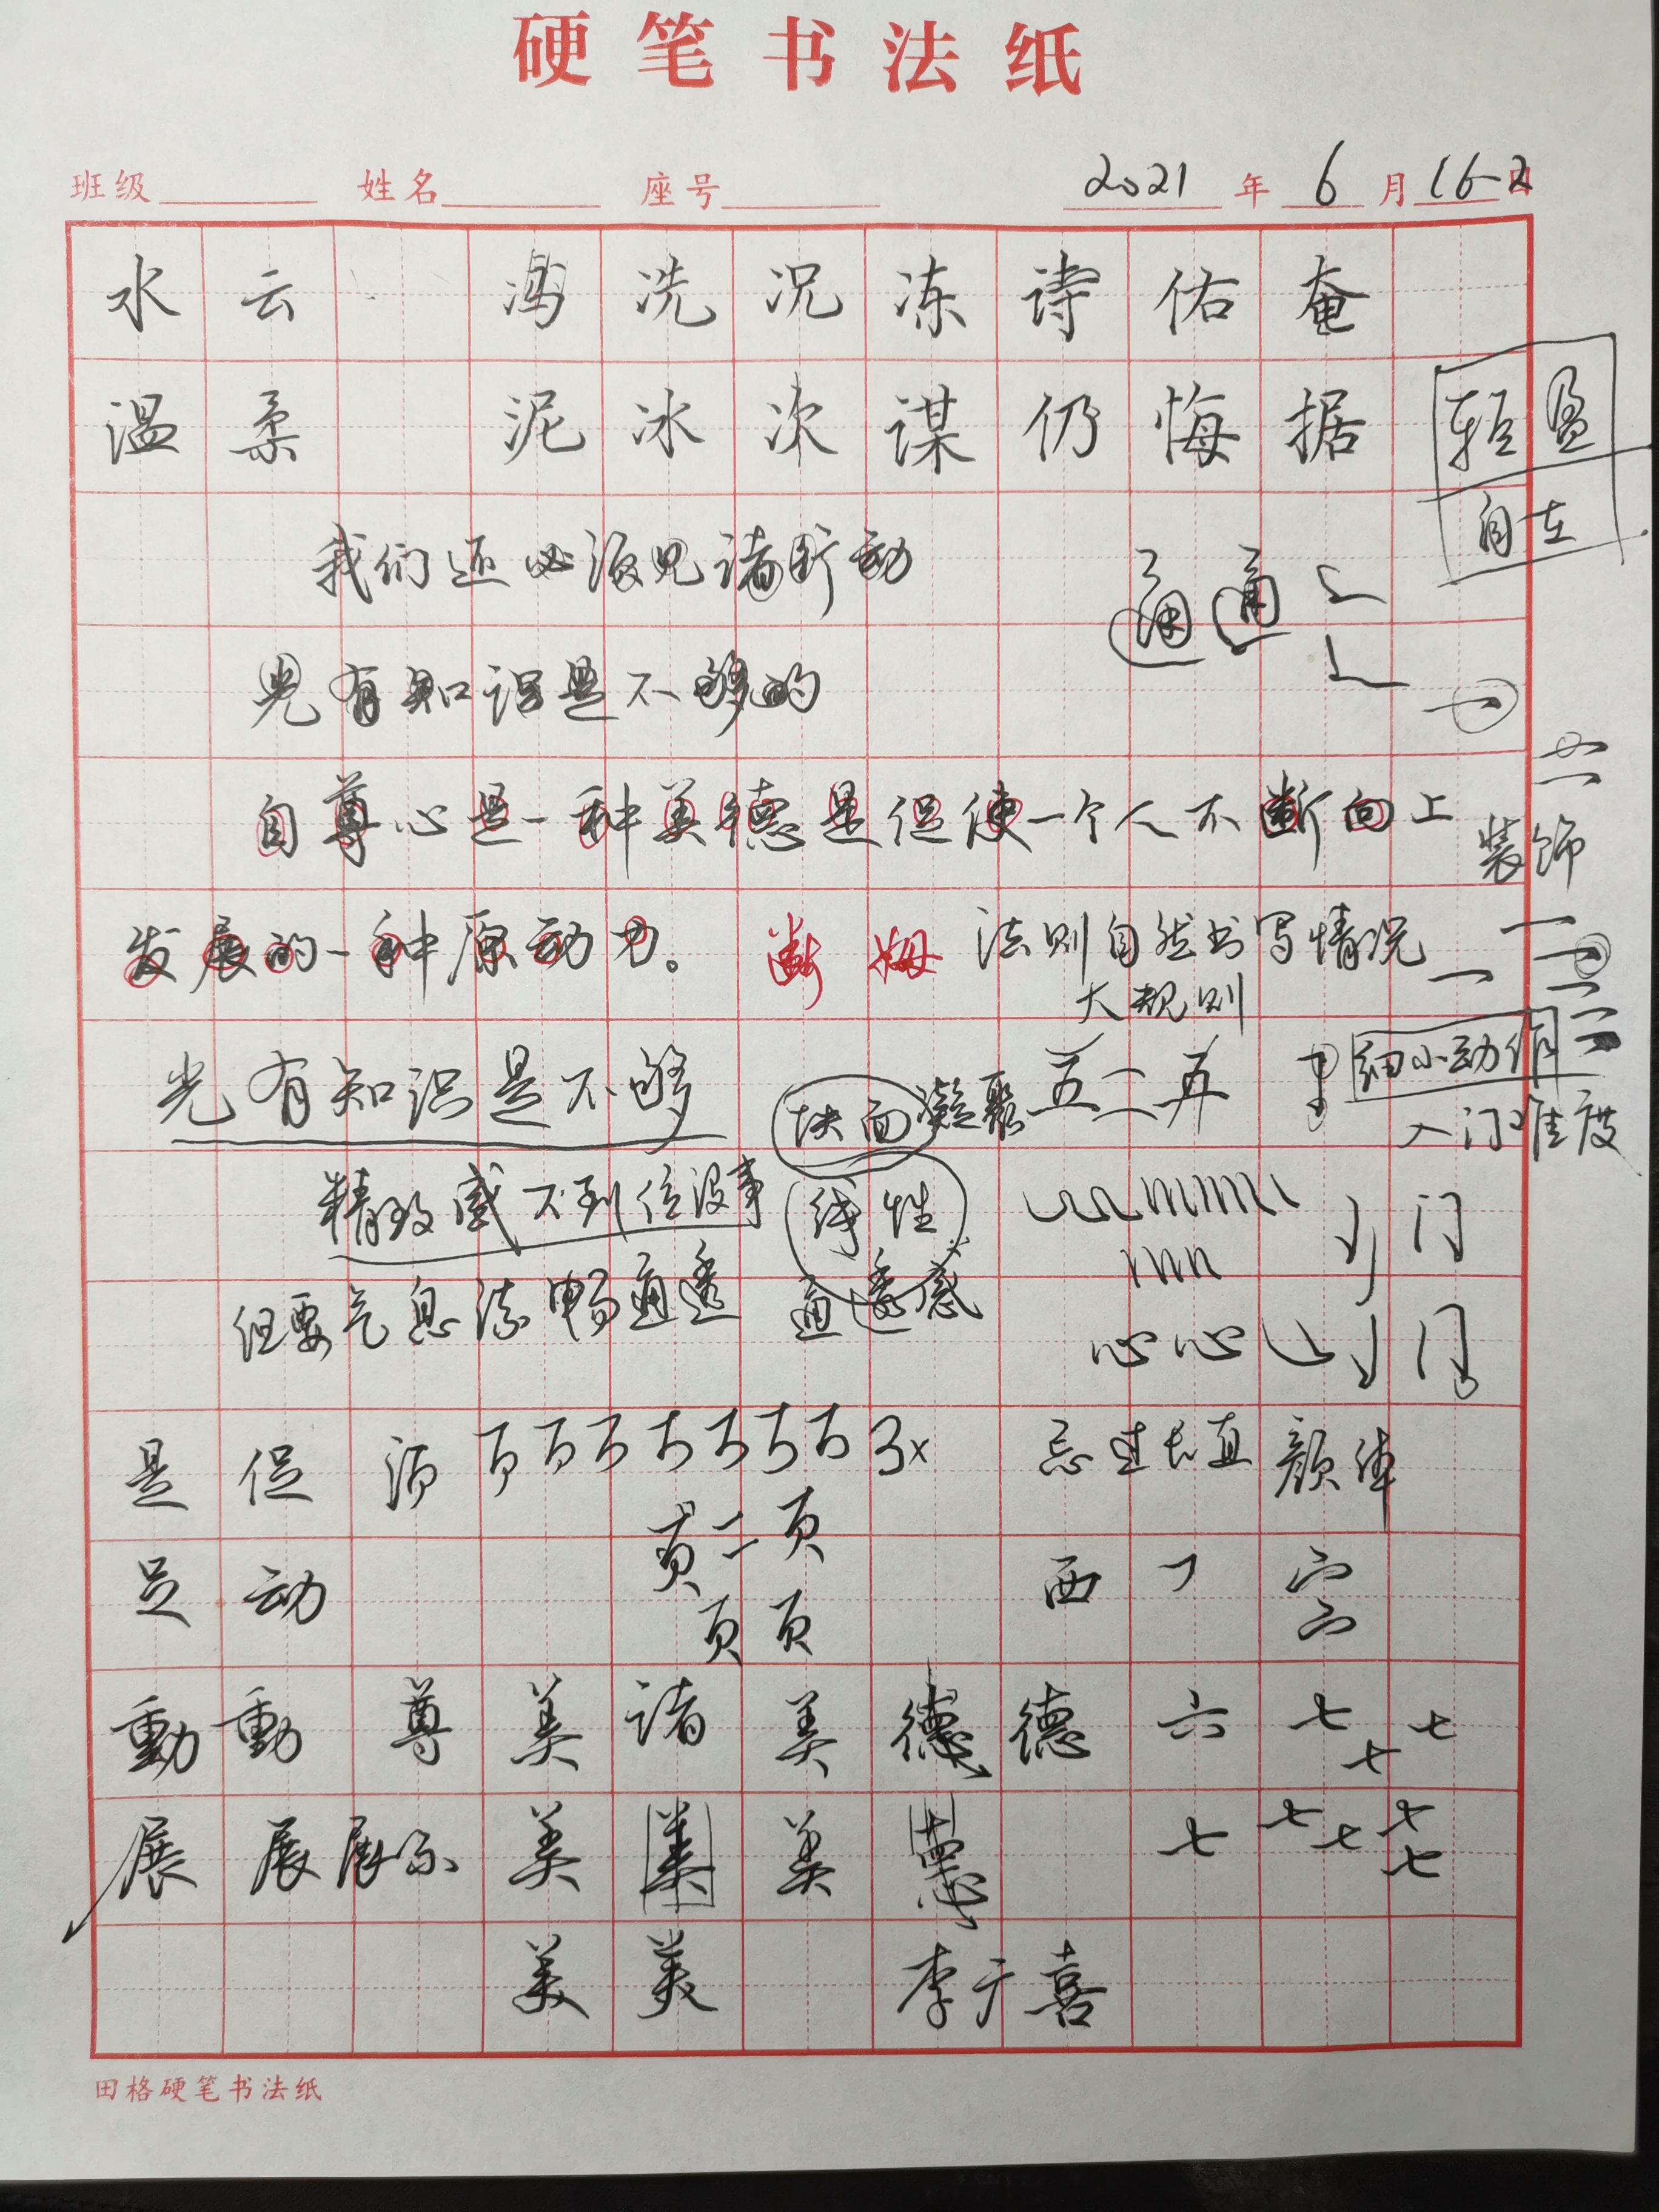 硬笔书法纸
班级 姓名 座号 2021年6月16-2日
水云 冯冼况冻诗佑奄
温柔 泥冰次谋仍悔据
轻盈
自在
我们还必须见诸行动
通通
光有知识是不够的
自尊心是一种美德是促使一个人不断向上
装饰
发展的一种原动力。 断 姆 法则自然书写情况
大规则
光有知识是不够 块面凝聚 五二再 细小动作
入门难度
精致感不到位没事 线性
门
但要气息流畅通透 通透感
心心 门
是促 页 忌 颜体
页二页
足动 西
页页
動動尊美诸美德德六七七
七
展展展示美美美 七七七七七
美美 李于喜
田格硬笔书法纸